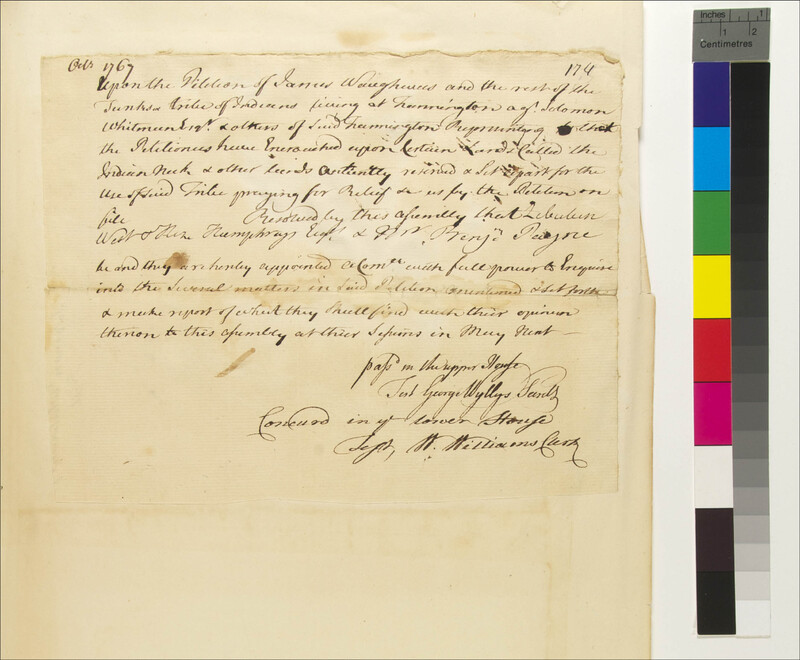 Octr 1767
174
Upon the Petition of James Waughwus and the rest of the
Tunks Tribe of Indians living at Farmington agt. Solomon
Whitman Esqr. & others of Said Farmington Representing to that
the Petitioners have Encroached upon Certain Lands Called the
Indian Neck & other lands antiently reserved & Set apart for the
Use of Said Tribe praying for Relief &c as pr. the Petition on
file Resolved by this assembly that Zebulun
West & Hez. Humphrays Esqrs. & Mr. Benja. Payne
be and they are hereby appointed a Comtee with full power to Enquire
into the Several matters in Said Petition mentioned & Set forth
& make report of what they Shall find with their opinion
thereon to this assembly at their Sessions in May Next
passd in the upper House
Test George Wyllys Secrety
Concurd in ye lower House
Test, W. Williams Clerk
Inches 1
1 2
Centimetres